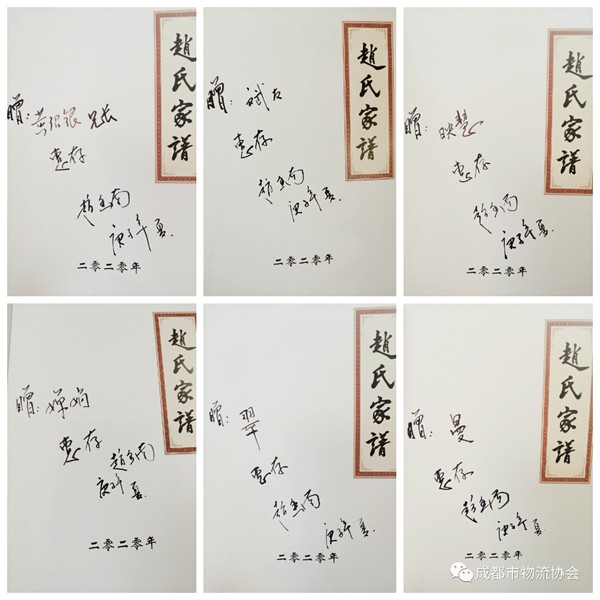 趙氏家譜
赠：银 兄长
惠存
赵 南
庚子年夏
二零二零年
趙氏家譜
赠：斌
惠存
赵 南
庚子年夏
二零二零年
趙氏家譜
赠：映慧
惠存
赵 南
庚子年夏
二零二零年
趙氏家譜
赠：婵娟
惠存
赵 南
庚子年夏
二零二零年
趙氏家譜
赠：
惠存
赵 南
庚子年夏
二零二零年
趙氏家譜
赠：曼
惠存
赵 南
庚子年夏
二零二零年
成都市物流协会